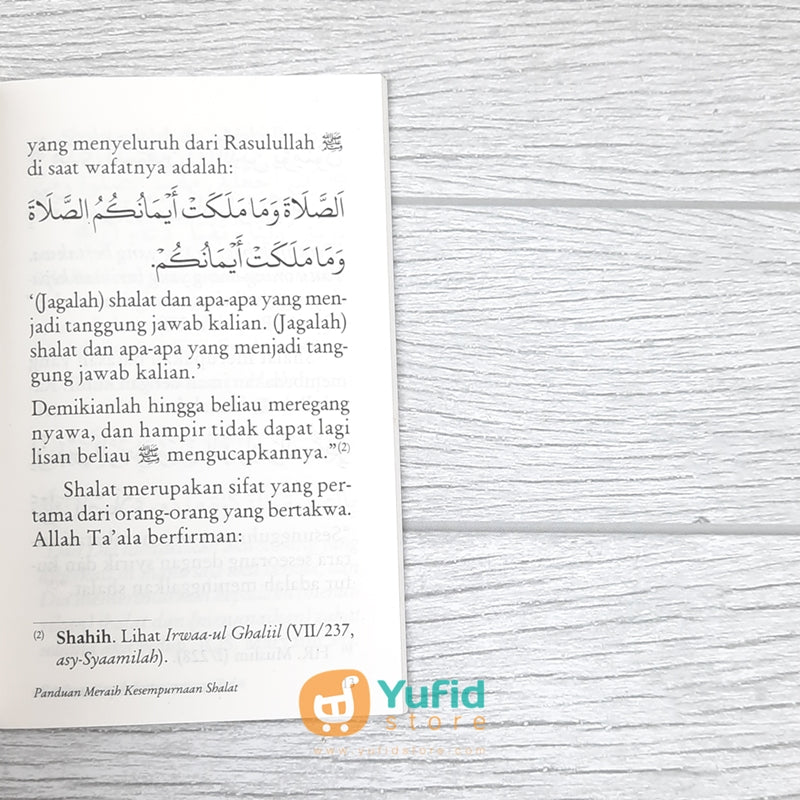 yang menyeluruh dari Rasulullah ﷺ
di saat wafatnya adalah:
اَلصَّلَاةَ وَمَا مَلَكَتْ أَيْمَانُكُمْ الصَّلَاةَ
وَمَا مَلَكَتْ أَيْمَانُكُمْ.
‘(Jagalah) shalat dan apa-apa yang men-
jadi tanggung jawab kalian. (Jagalah)
shalat dan apa-apa yang menjadi tang-
gung jawab kalian.’
Demikianlah hingga beliau meregang
nyawa, dan hampir tidak dapat lagi
lisan beliau ﷺ mengucapkannya.”(2)
Shalat merupakan sifat yang per-
tama dari orang-orang yang bertakwa.
Allah Ta’ala berfirman:
(2) Shahih. Lihat Irwaa-ul Ghaliil (VII/237,
asy-Syaamilah).
Panduan Meraih Kesempurnaan Shalat
Yufid
store
www.yufidstore.com